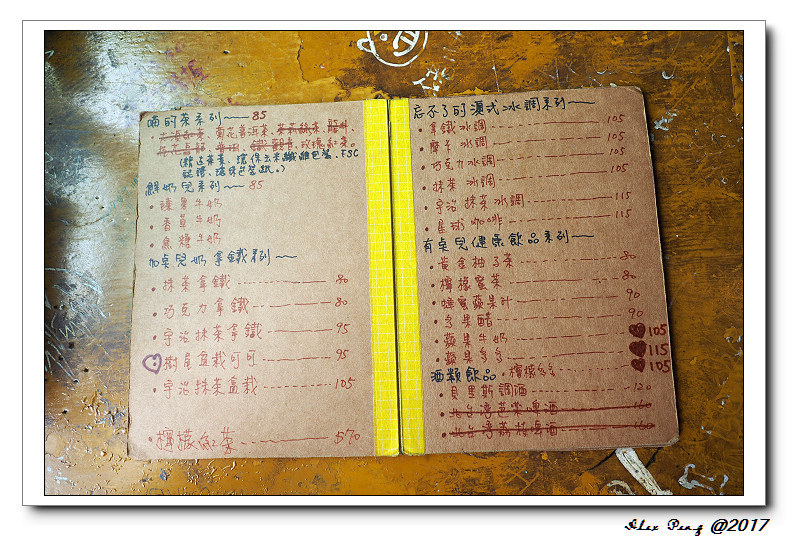 喃的茶系列～ 85
菊花普洱茶、玫瑰紅茶。
(精選茶葉, 環保玉米纖維包裝, FSC
認證, 環保包裝紙。)
鮮奶兒系列～ 85
• 榛果牛奶
• 香草牛奶
• 黑糖牛奶
加桌兒奶拿鐵系列～
• 抹茶拿鐵 80
• 巧克力拿鐵 80
• 宇治抹茶拿鐵 95
• 樹屋盆栽可可 95
• 宇治抹茶盆栽 105
• 檸檬紅茶 $70
忘不了的漢式冰調系列～
• 拿鐵冰調 105
• 摩卡冰調 105
• 巧克力冰調 105
• 抹茶冰調 105
• 宇治抹茶冰調 115
• 星球咖啡 115
有桌兒健康飲品系列～
• 黃金柚子茶 80
• 檸檬蜜茶 80
• 蜂蜜蘋果汁 90
• 多果醋 90
• 蘋果牛奶 105
• 蘋果多多 115
• 檸檬多多 105
酒類飲品
• 貝里斯調酒 120
160
160
Alex Peng @2017